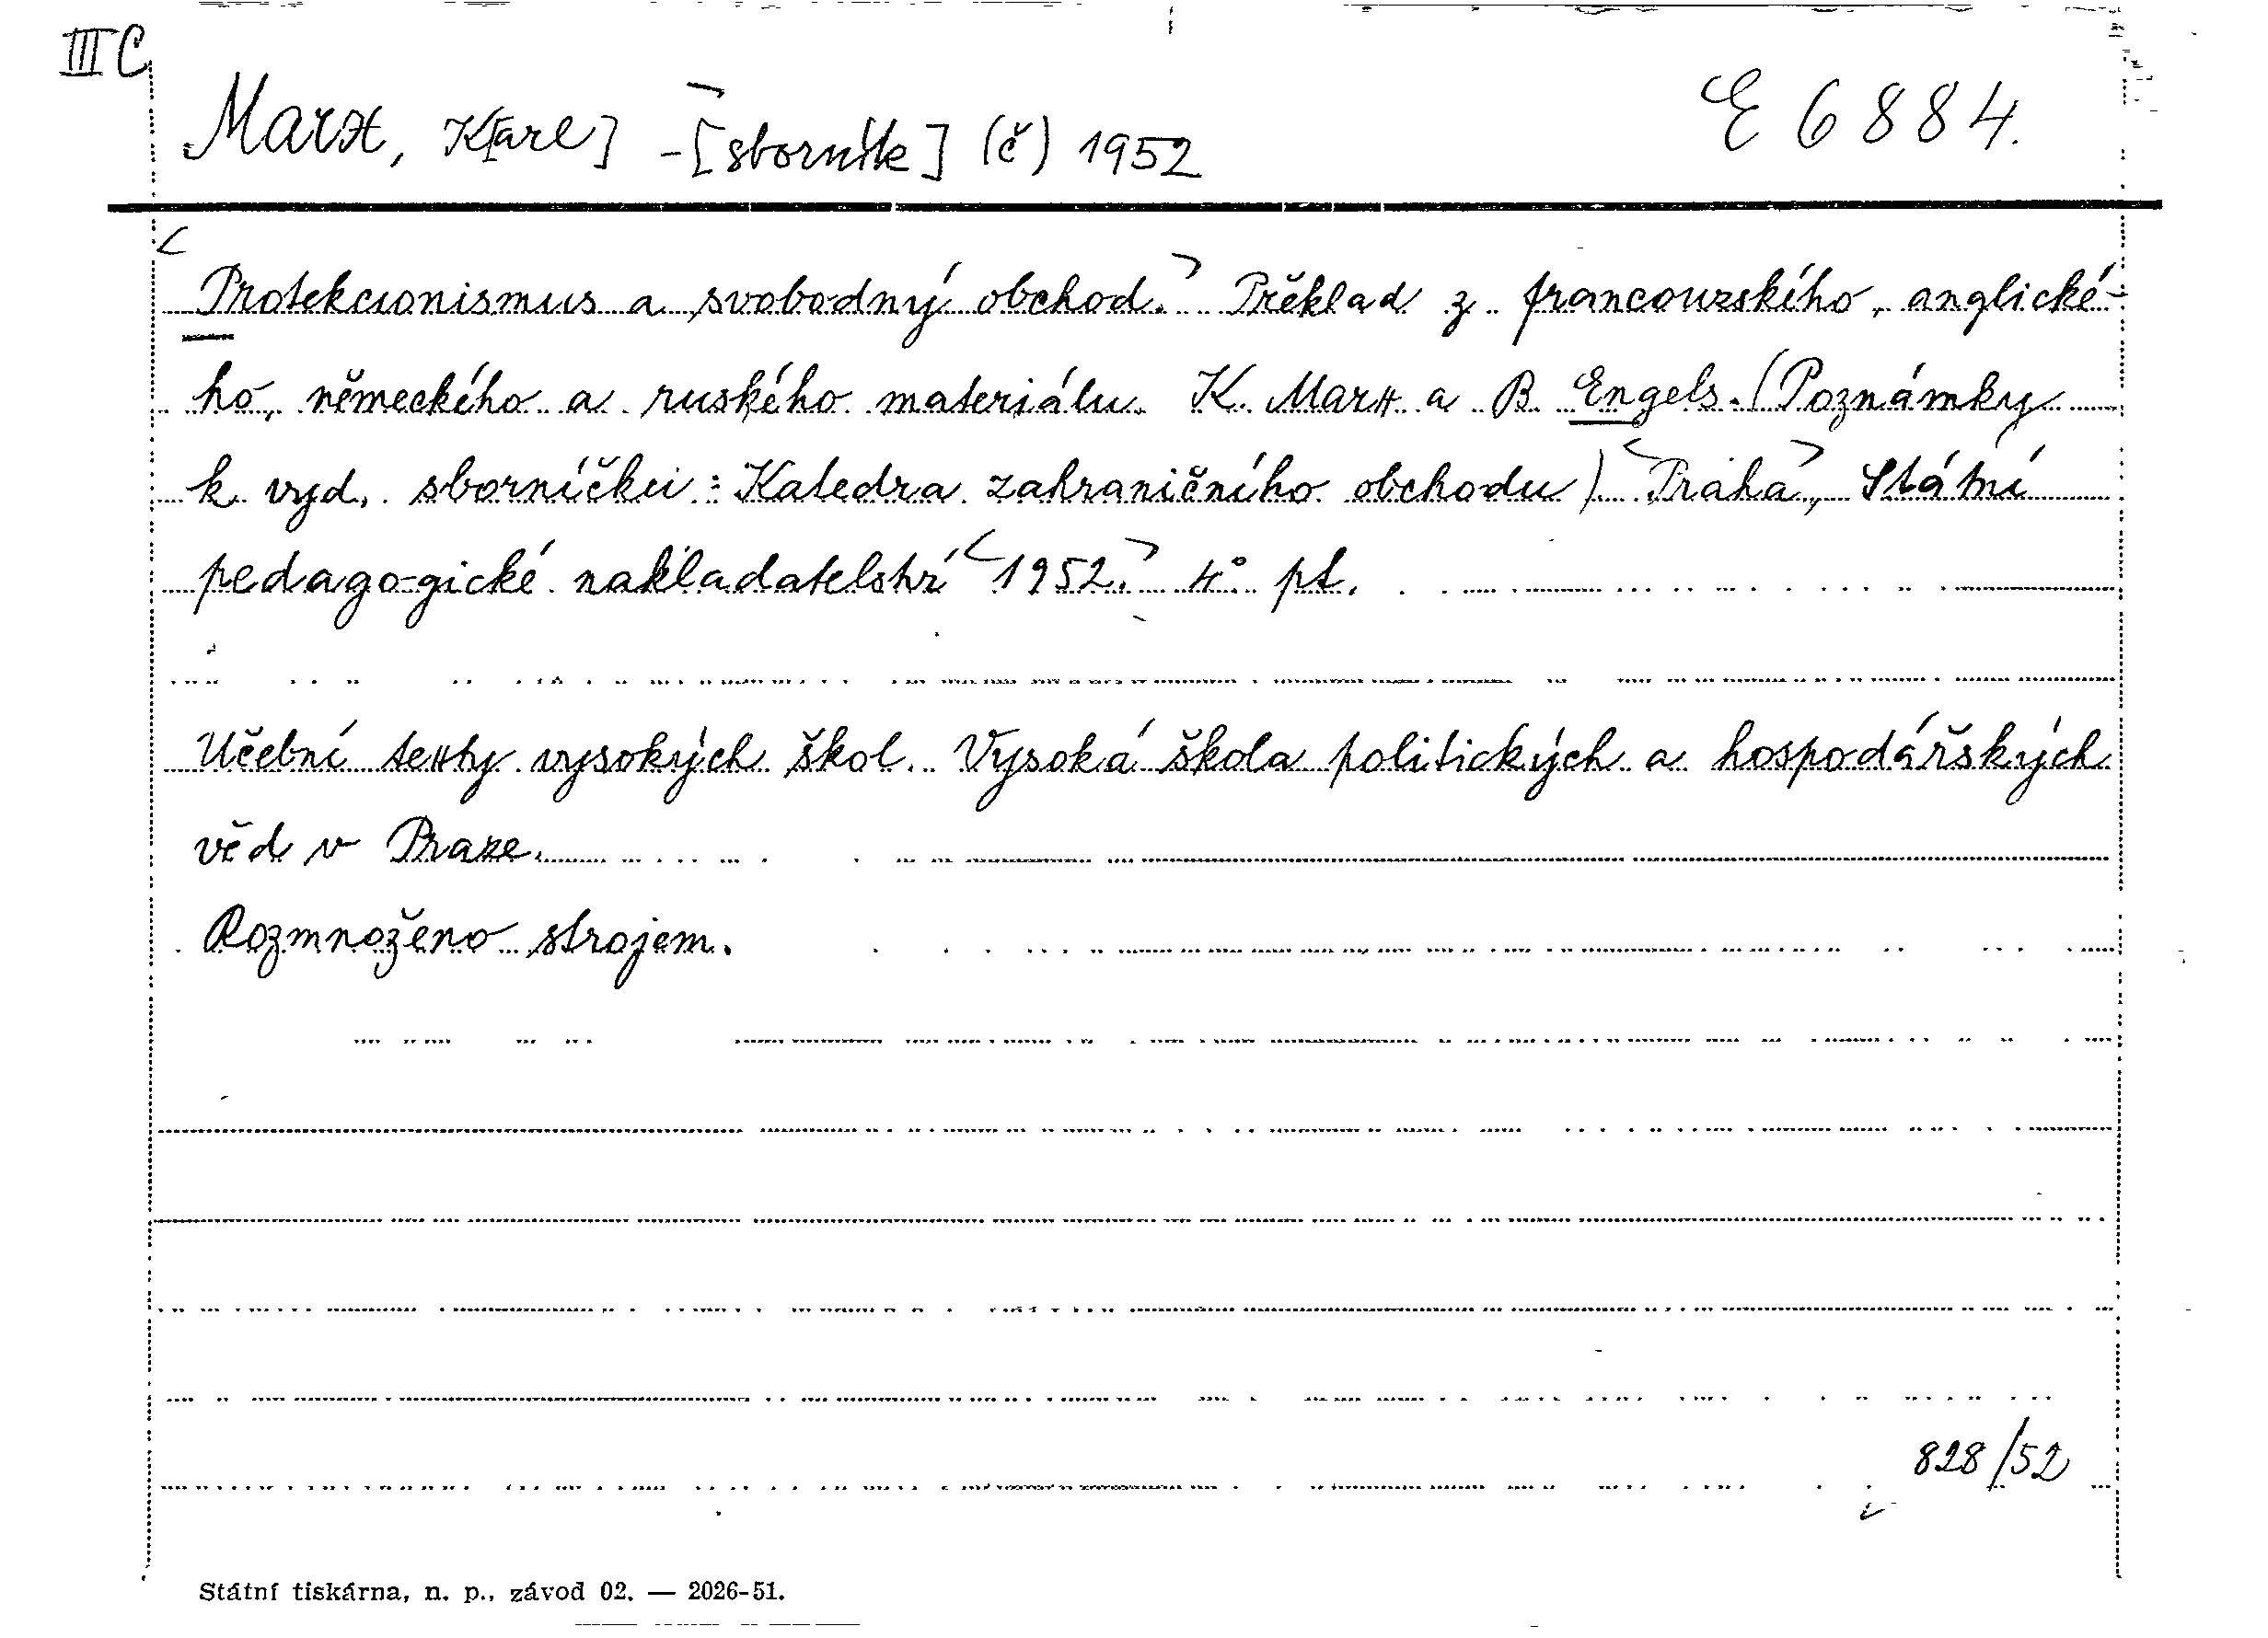 III C
Marx, K[arl] - [sborník] (č) 1952
E 6884.
<Protekcionismus a svobodný obchod.> Překlad z francouzského, anglické-
ho, německého a ruského materiálu. K. Marx a B. Engels. (Poznámky
k vyd. sborníčku: Katedra zahraničního obchodu) <Praha>, Státní
pedagogické nakladatelství <1952.> 4° pt.
Učební texty vysokých škol. Vysoká škola politických a hospodářských
věd v Praze.
Rozmnoženo strojem.
828/52
Státní tiskárna, n. p., závod 02. — 2026-51.